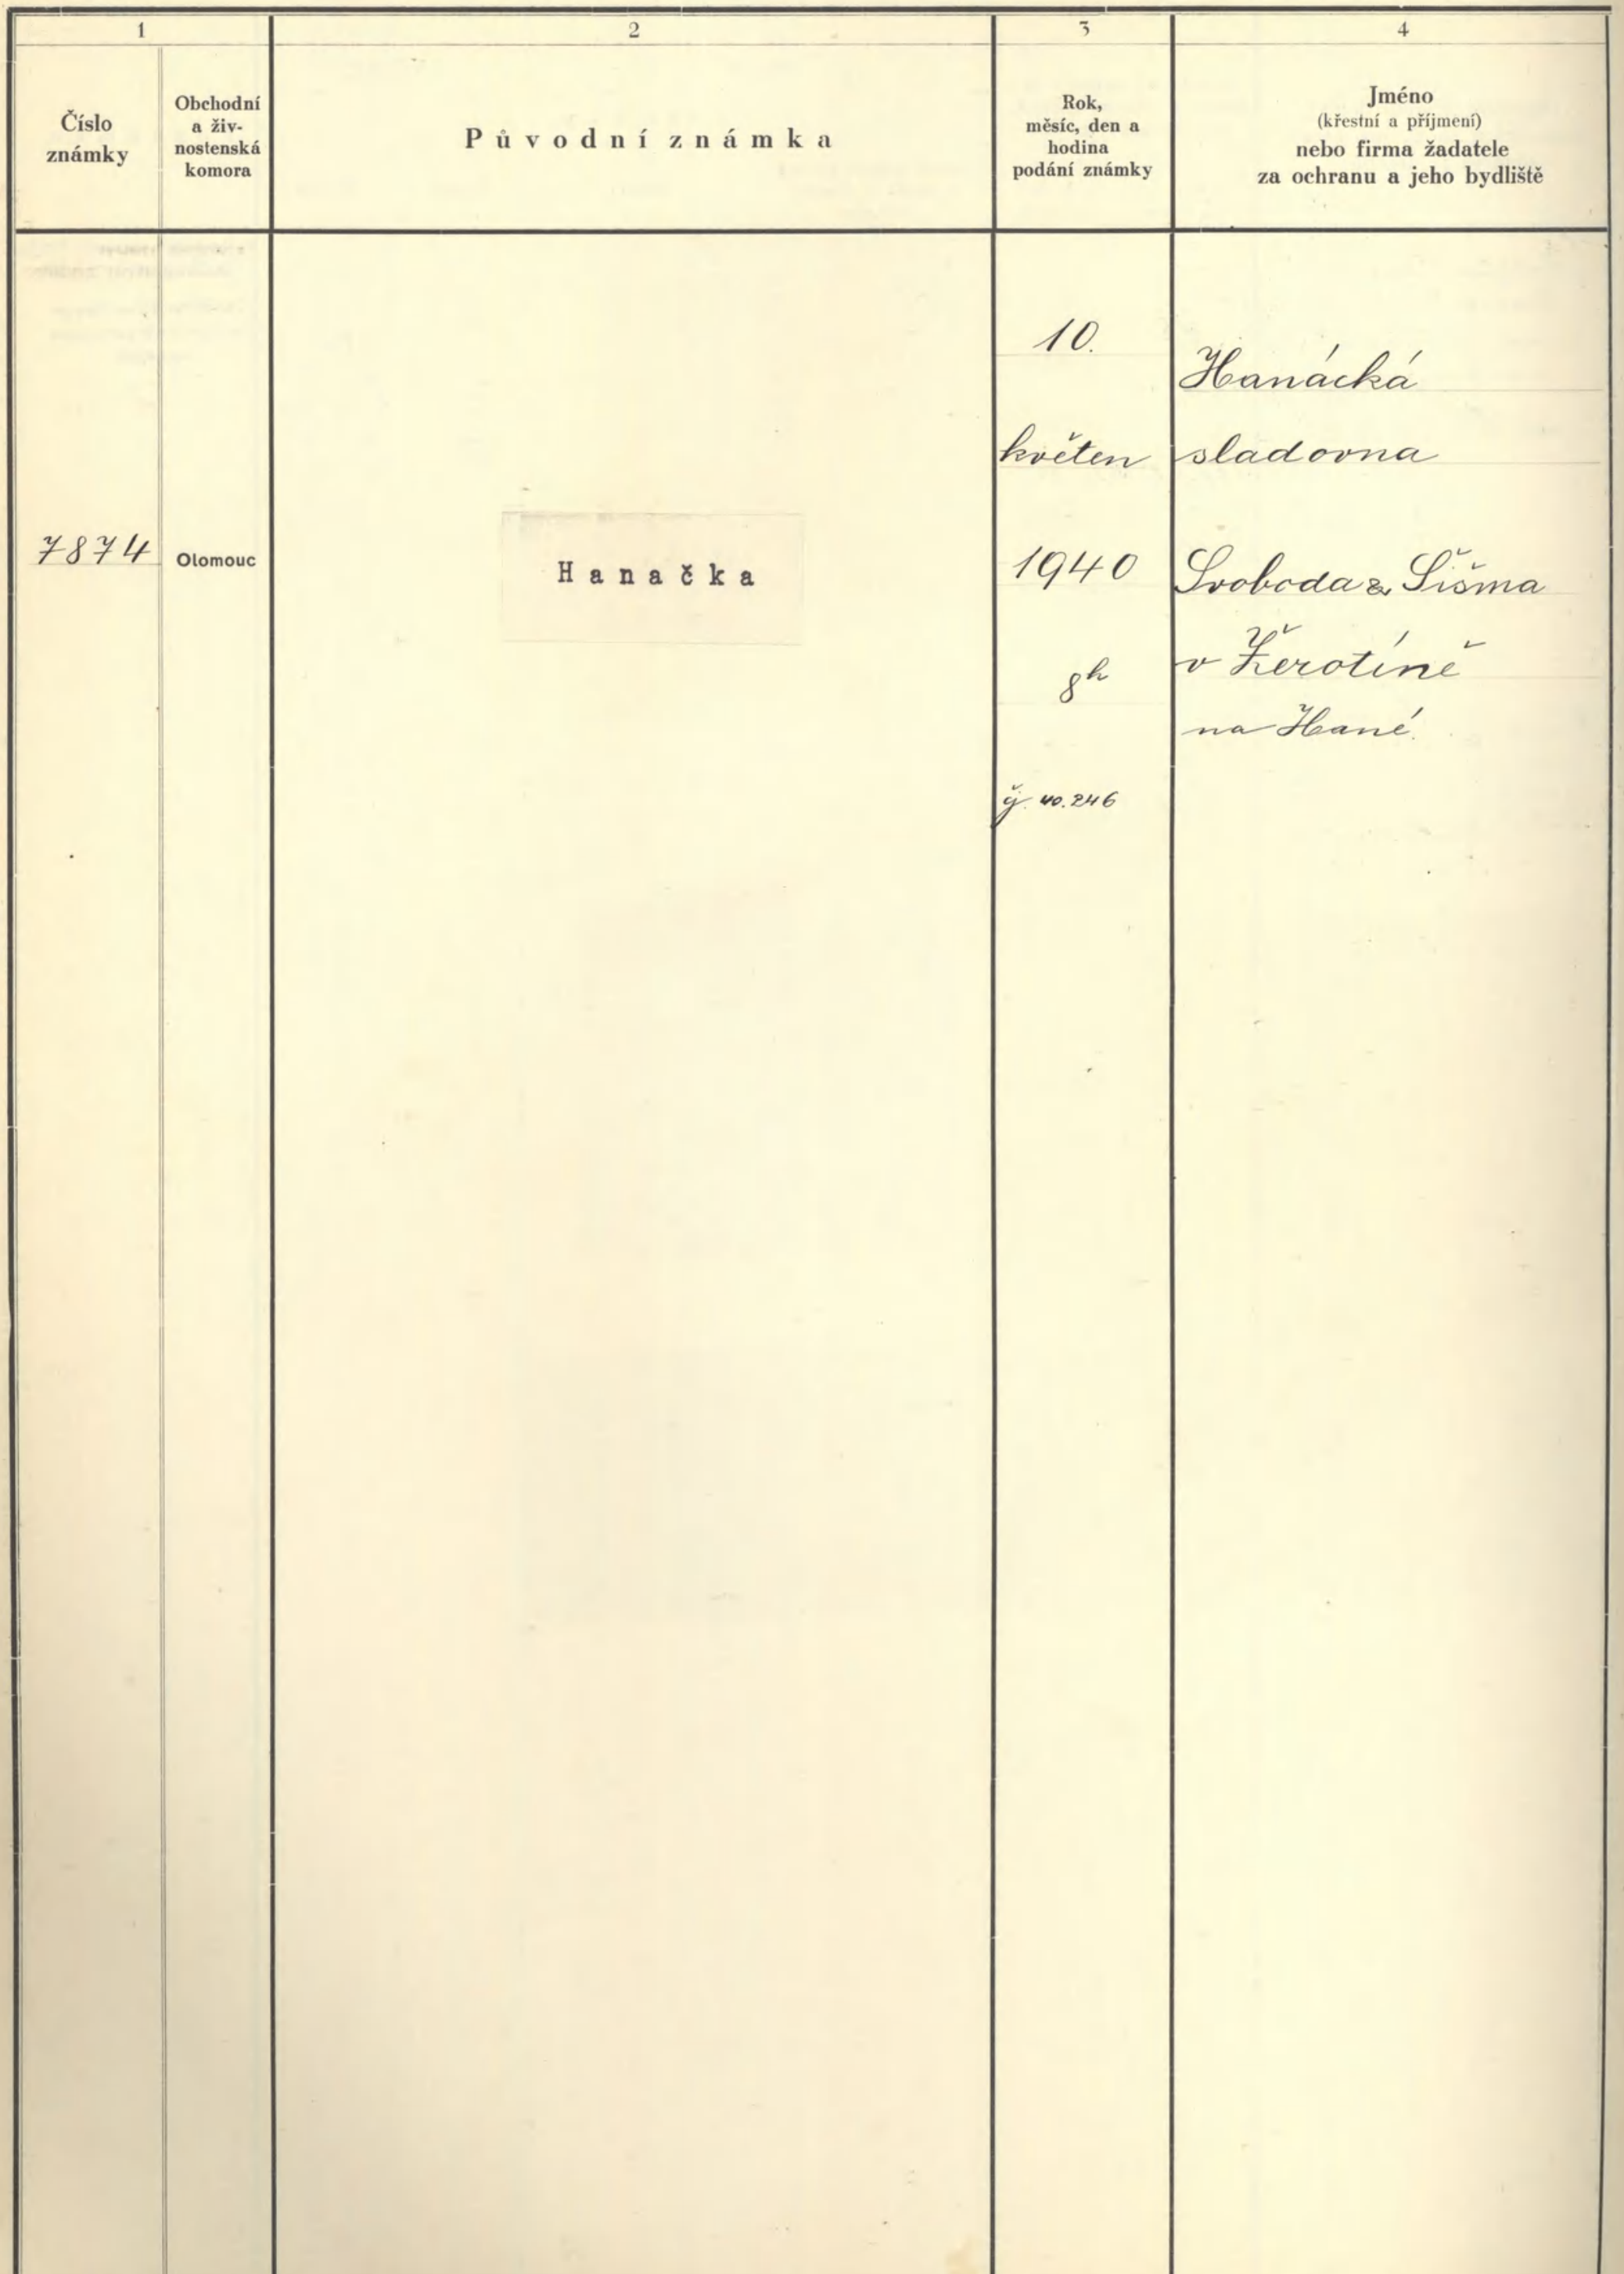 1
2
3
4
Číslo
známky
Obchodní
a živ-
nostenská
komora
Původní známka
Rok,
měsíc, den a
hodina
podání známky
Jméno
(křestní a příjmení)
nebo firma žadatele
za ochranu a jeho bydliště
7874
Olomouc
Hanačka
10.
květen
1940
8h
čj. 40.246
Hanácká
sladovna
Svoboda & Šišma
v Žerotíně
na Hané.